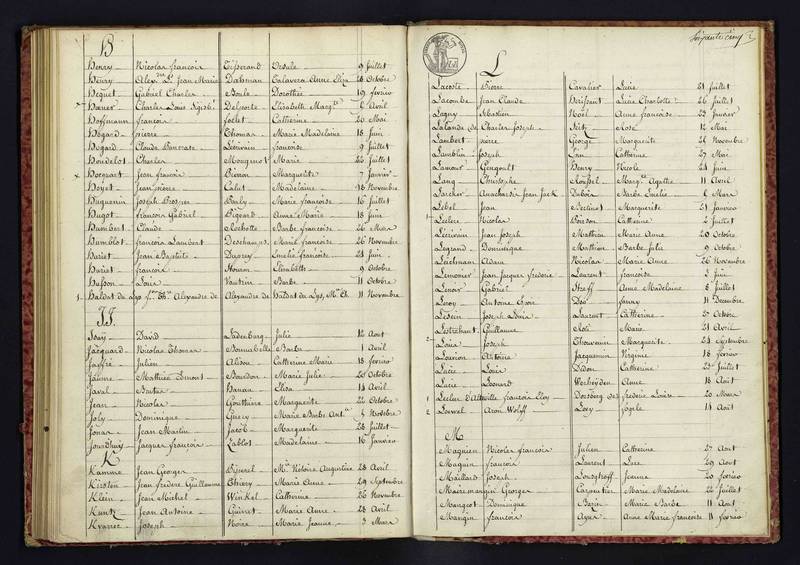 H
Henry Nicolas françois Tisserand Ursule 9 Juillet
Henry Alexdre Ls Jean Marie Dahman Talavera Anne Eliza 28 Octobre
Hequet Gabriel Charles Boule Dorothée 19 février
Herner Charles Louis Delporte Elisabeth Margte 6 Avril
Hoffmann françois Joclet Catherine 20 Mai
Hogard pierre Thomas Marie Madelaine 18 Juin
Hogard Claude Pancrace Lécrivain françoise 9 Juillet
Houdelot Charles Mougenot Marie 23 Juillet
x Hocquart Jean françois Pieron Marguerite 7 Janvier
Hoyet Jean pierre Calut Madelaine 18 Novembre
Huguenin Joseph Prosper Barly Marie françoise 16 Juillet
Hugot françois Gabriel Pigeard Anne Marie 18 Juin
Humbert Claude Rochotte Barbe françoise 26 Mars
Humblot françois Lambert Deschamps Marie françoise 26 Novembre
Huriet Jean Baptiste Duprey Emélie françoise 21 Juin
Huriet françois Elisabeth 9 Octobre
Husson Louis Vautrin Barbe 11 Octobre
1 Haldat du Lys Alexandre de Alexandre de Haldat du Lys, 11 Novembre
IJ
Isay David Ladenburg Julie 12 Aout
Jacquard Nicolas Thomas Bonnabelle Barbe 1 Avril
Jaffré Julien Alison Catherine Marie 18 février
Jaume Mathieu Edmont Bourdon Marie Julie 28 Octobre
Javal Bartée Hanau Elisa 14 Avril
Jean Nicolas Gonthaire Marguerite 22 Octobre
Joly Dominique Guéry Marie Barbe Antte 5 Novembre
Jonas Jean Martin Jacob Marguerite 28 Juillet
Jacques françois Lablot Madelaine 16 Janvier
K
Kamme Jean Georges Mie Victoire Augustine 28 Avril
Kirsten Jean fredéric Guillaume Thiery Marie Anne 29 Septembre
Klein Jean Michel Winkel Catherine 26 Novembre
Kuntz Jean Antoine Guinet Marie Anne 28 Avril
Joseph Noire Marie Jeanne 3 Mars
Soixante cinq
L
Lacoste Pierre Cavalier Lucie 21 Juillet
Lacombe Jean Claude Brissart Lucie Charlotte 26 Juillet
Lagny Sébastien Noel Anne françoise 23 Janvier
Lalande de Charles Joseph Rose 12 Mai
Lambert pierre George Marguerite 21 Novembre
Lamblin Joseph Catherine 27 Mai
Lamour Gengoult Henry Nicole 24 Juin
Lang Christophe Roussel Margte Agathe 11 Avril
Larcher Anacharsis Jean Jack Dubois Barbe Emélie 6 Mars
Lebel Jean Bertinet Marguerite 21 Janvier
1 Leclerc Nicolas Poirson Catherine 2 Juillet
Lécrivain Jean Joseph Mathieu Marie Anne 20 Octobre
Legrand Dominique Mathieu Barbe Julie 9 Octobre
Leichmann Adam Nicolas Marie Anne 26 Novembre
Lemonier Jean Jacques frederic Laurent françoise 2 Juin
Lenoir Gabriel Streff Anne Madelaine 8 Juillet
Leroy Antoine fanny 11 Décembre
Joseph Louis Laurent Catherine 27 Octobre
Guillaume Marie 21 Avril
2 Louis Joseph Thouvenin Marguerite 24 Septembre
Louvion Antoine Jacquemin Virginie 18 février
Lucie Louis Didon Catherine 23 Juillet
Lucie Léonard Verheyden Anne 18 Aout
1 Leclerc D'Alteville françois Eloy Dorsberg de frederic Louise 20 Mars
2 Loewel Aron Wolff Loey 14 Aout
M
Maguien Nicolas françois Julien Catherine 27 Aout
Maguin françois Laurent Lucie 29 Aout
Maillard Joseph Jeanne 20 février
Mairemangin Georges Carpentier Marie Madelaine 22 Juillet
Mangeot Dominique Bazin Marie Barbe 11 Aout
Mangin françois Anne Marie françoise 11 février